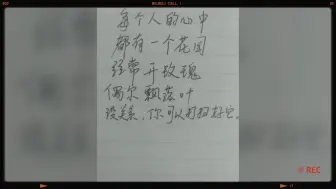 每个人的心中
都有一个花园
经常开玫瑰
偶尔飘落叶
没关系，你可以打扫好它。
REC